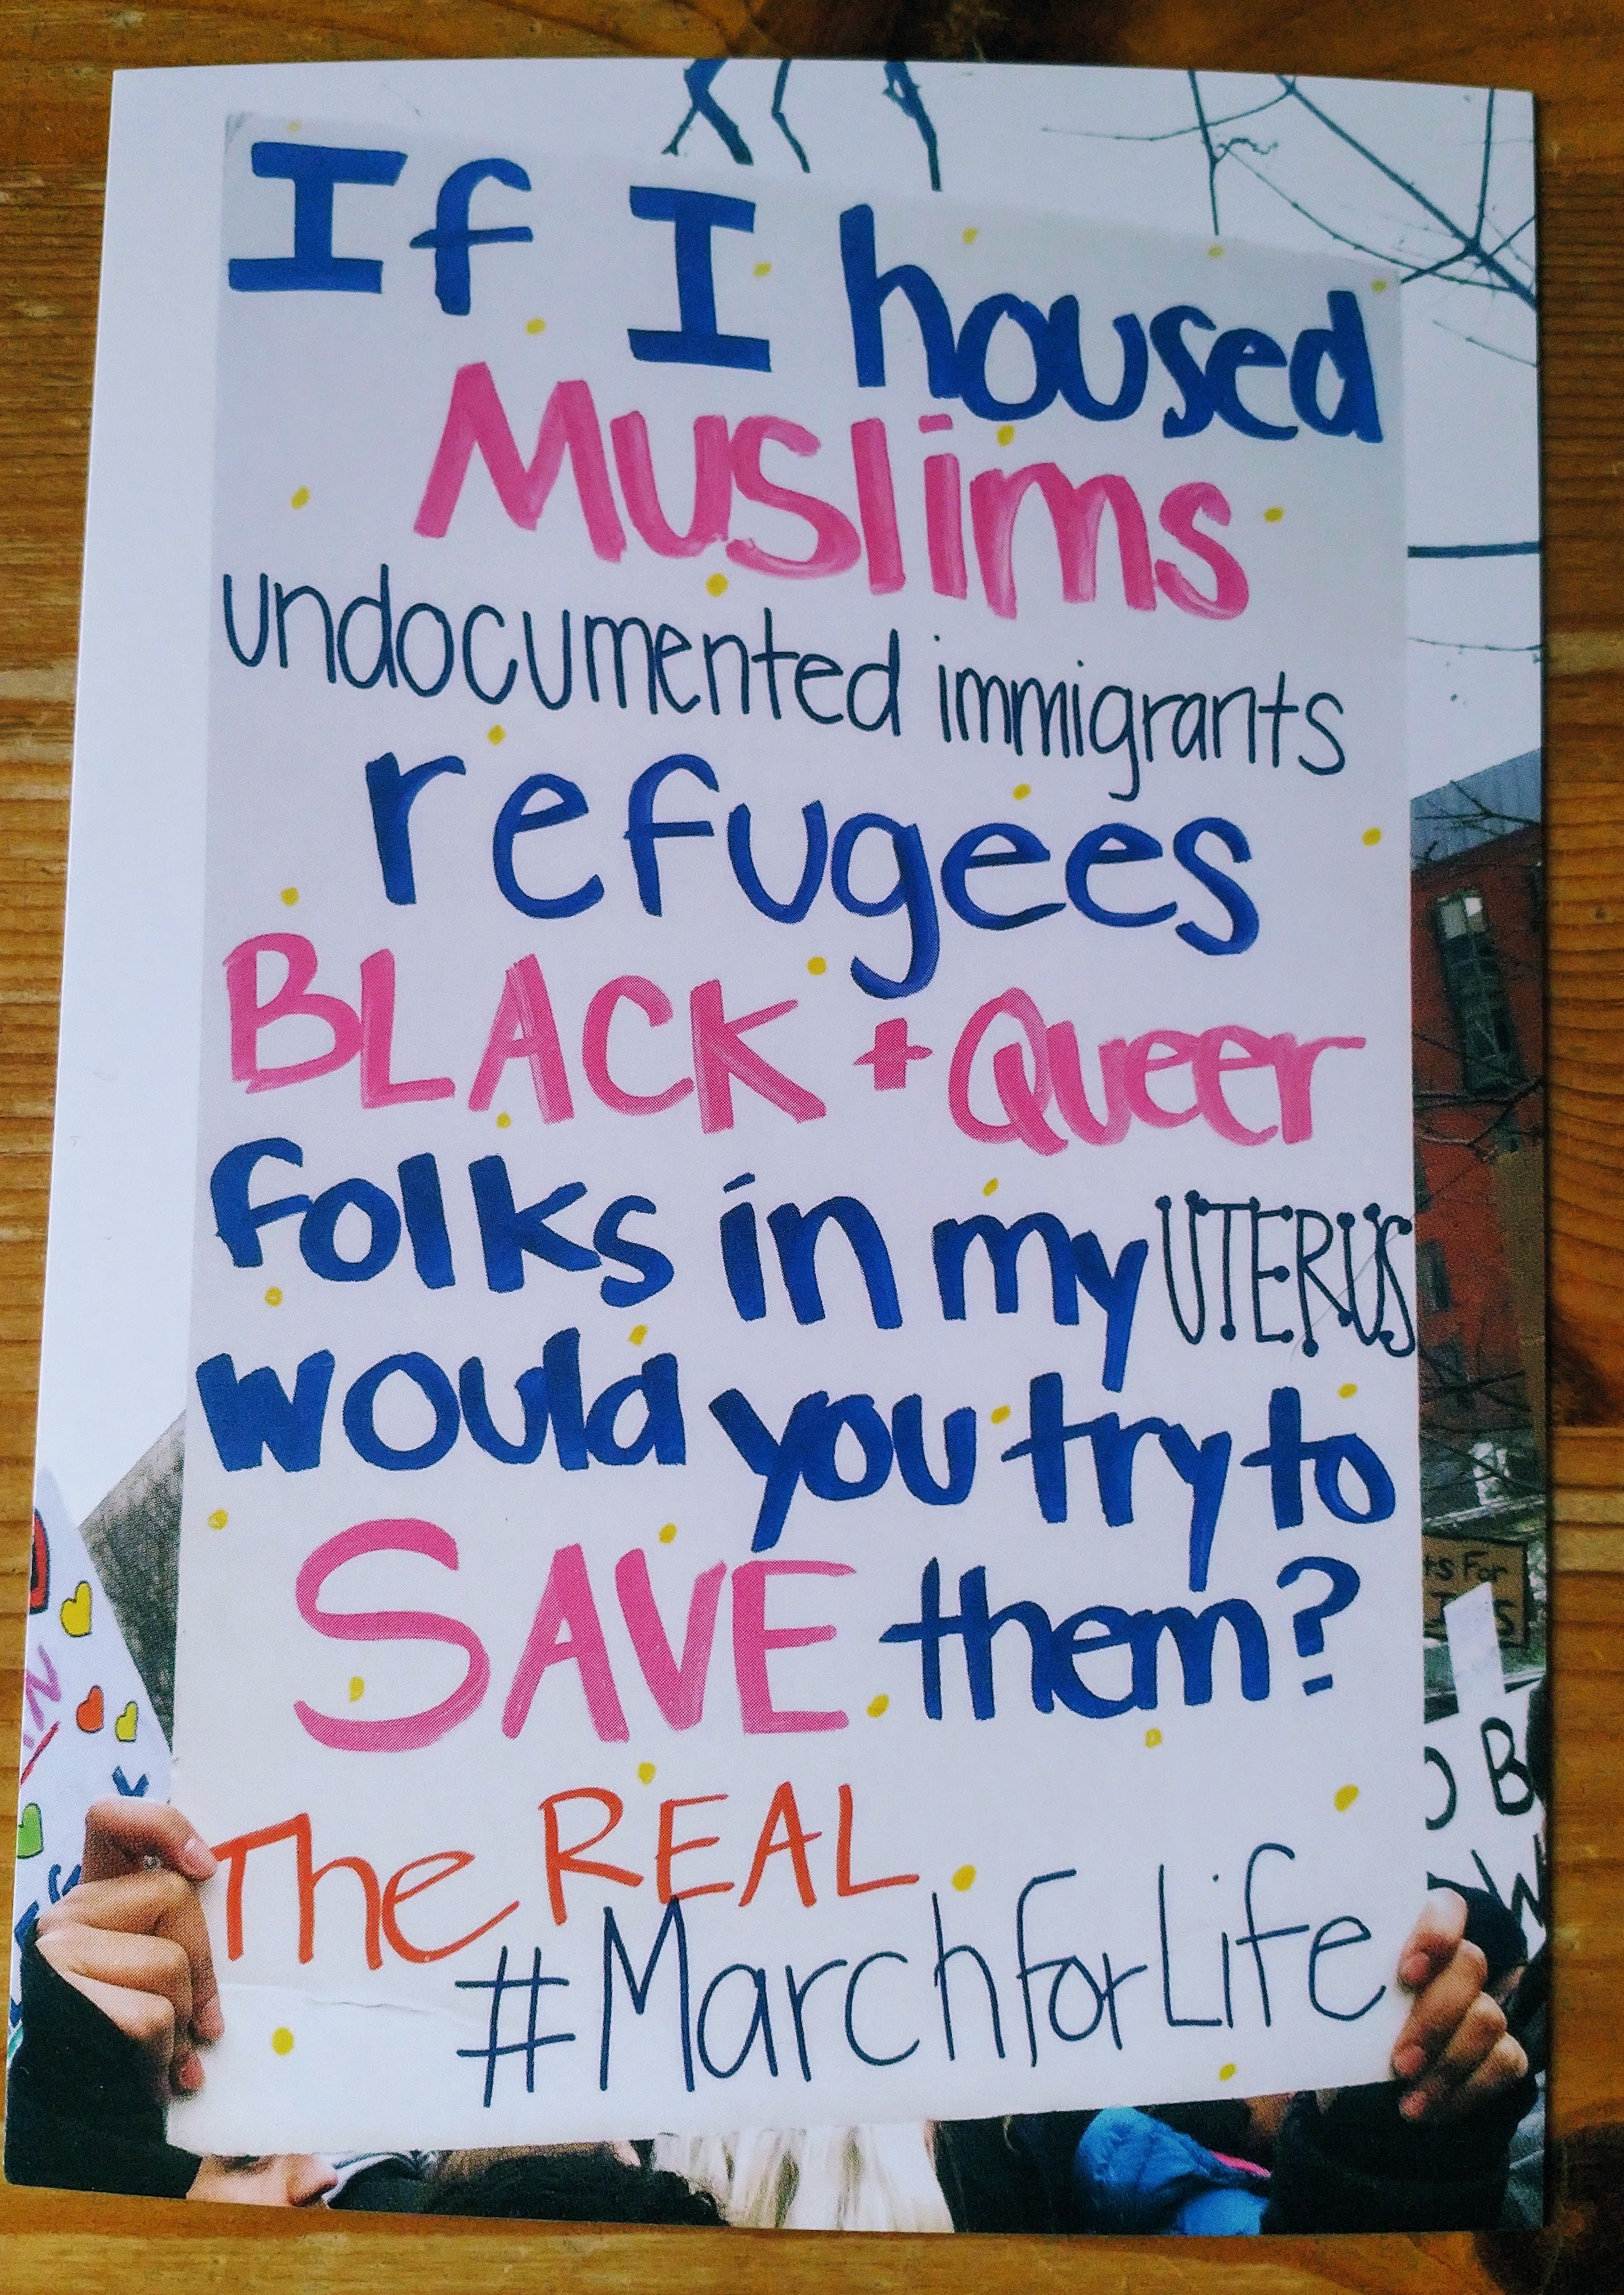 If I housed
Muslims
undocumented immigrants
refugees
BLACK + Queer
folks in my UTERUS
would you try to
SAVE them?
The REAL
#MarchforLife
ts For
B